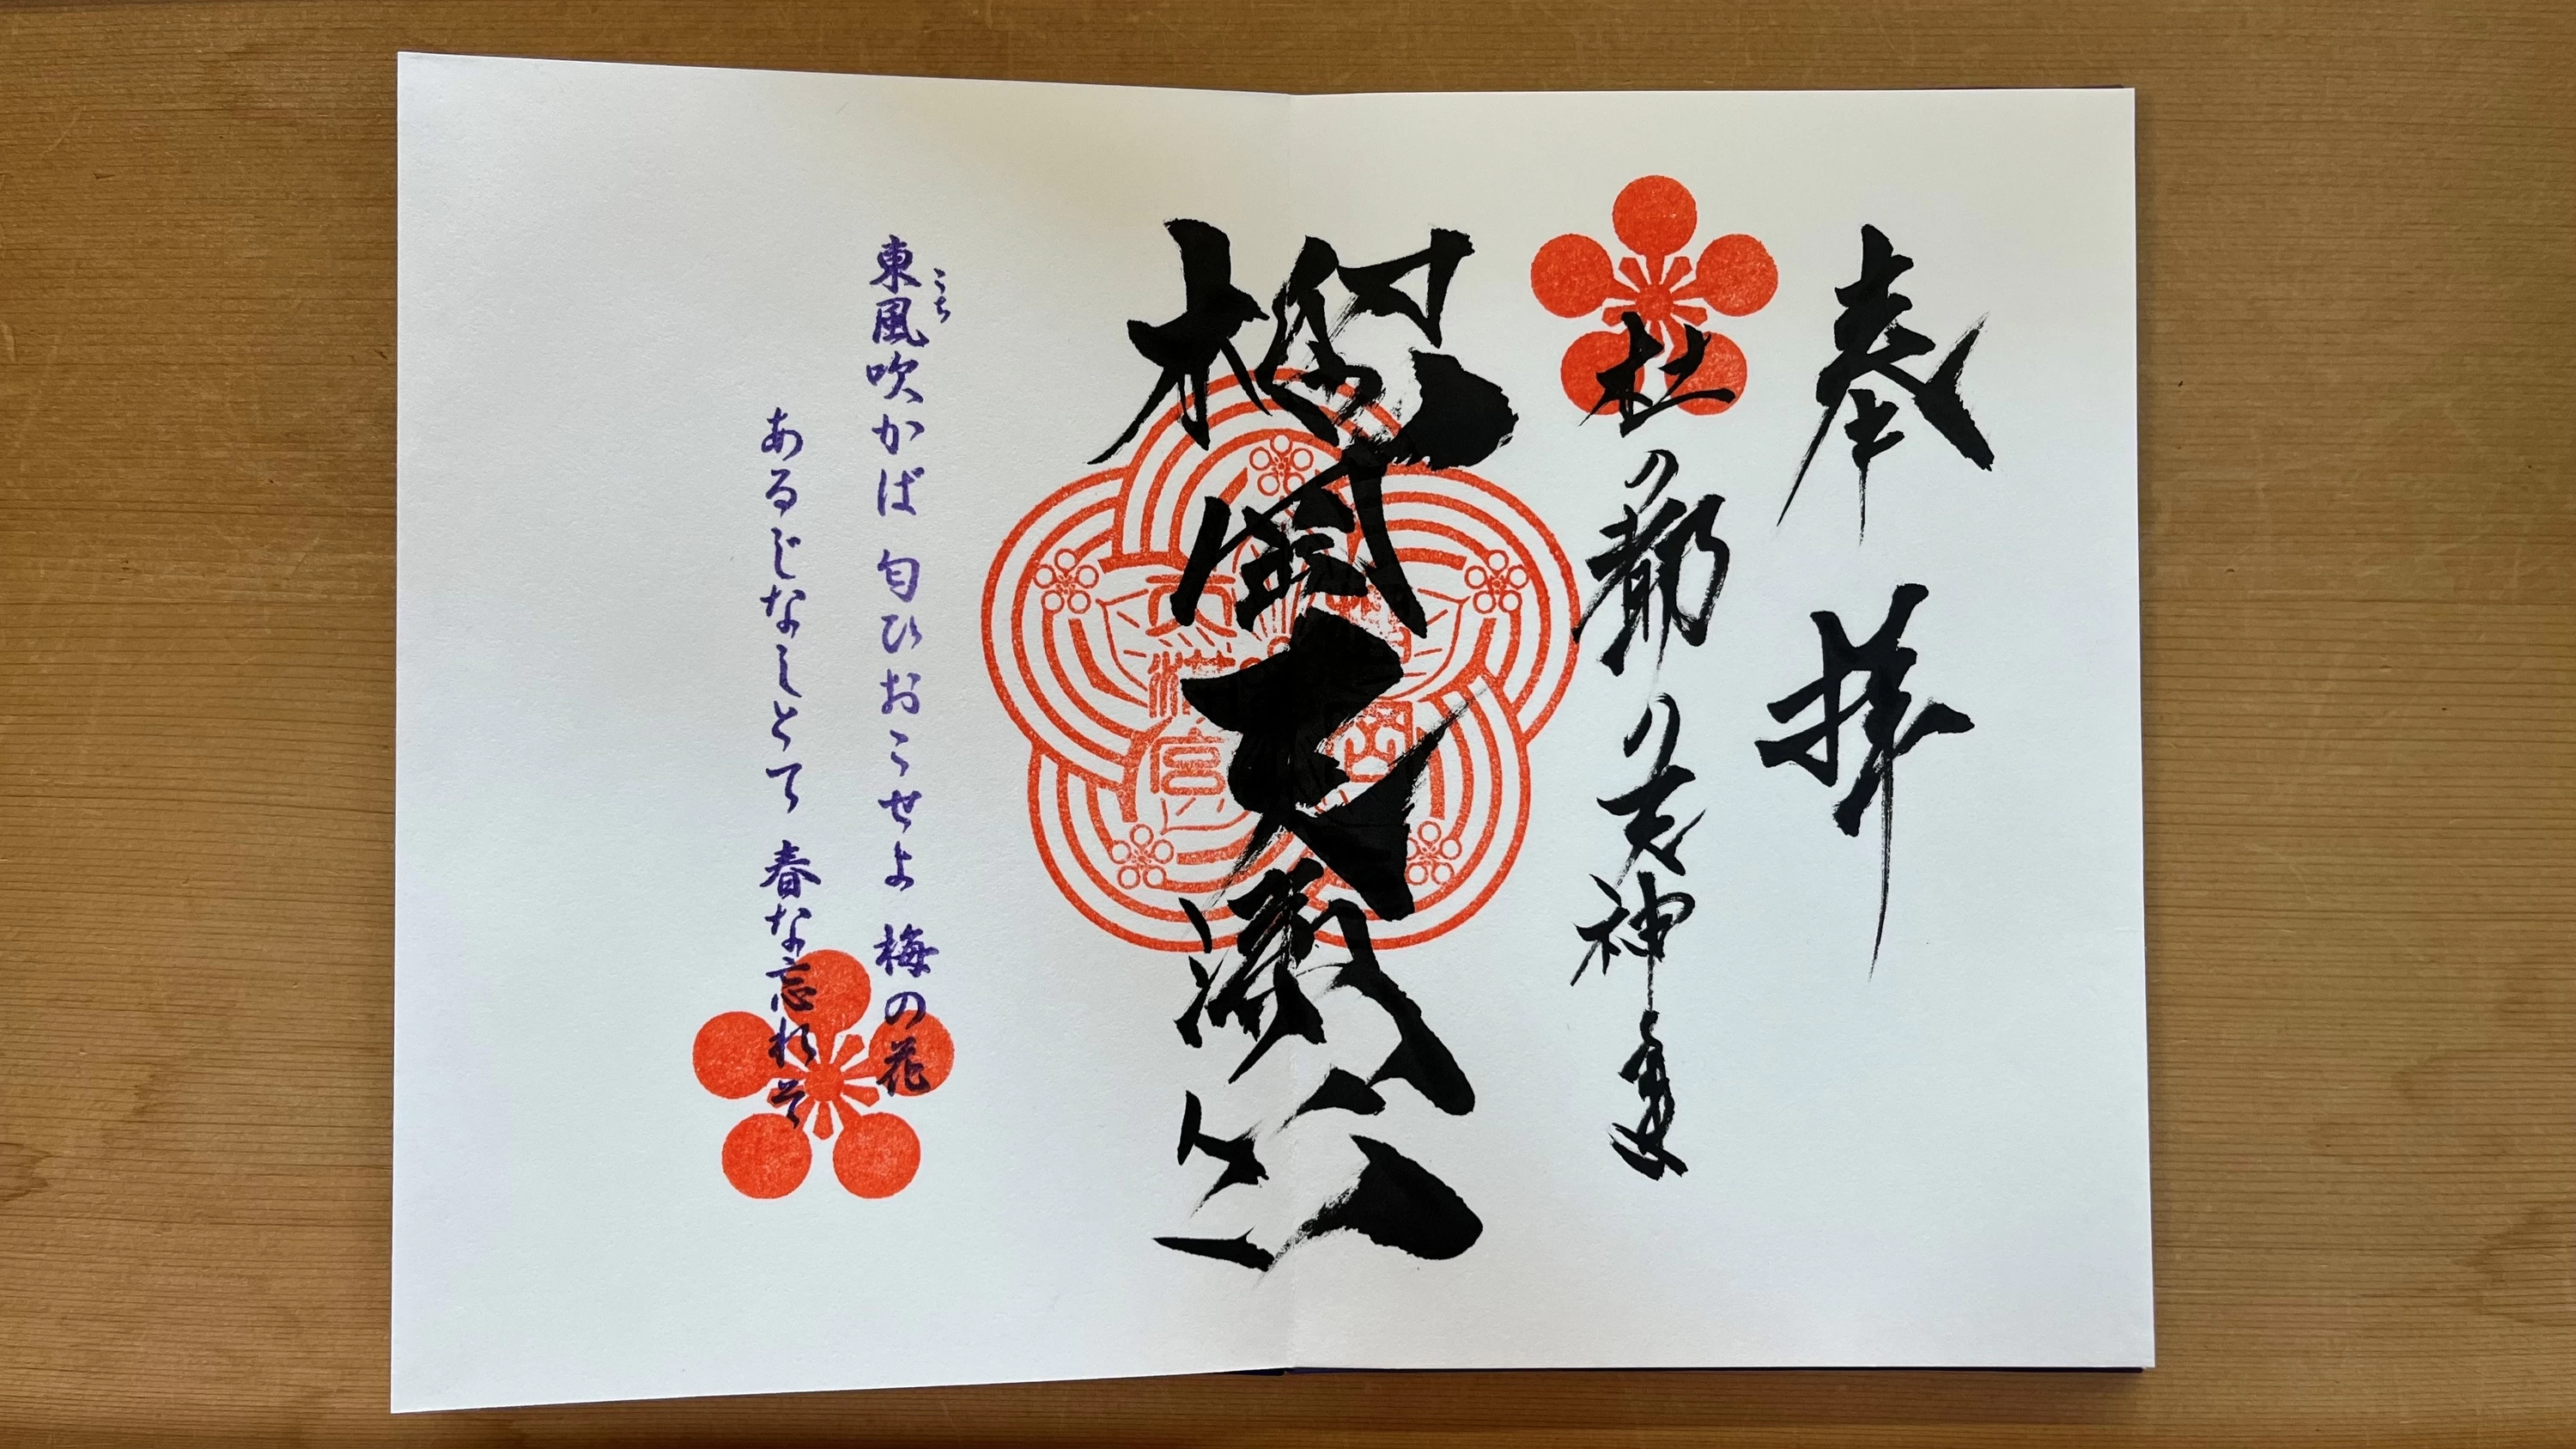 奉拝
杜の都の天神さま
榴岡天満宮
榴岡
天満宮
こち
東風吹かば 匂ひおこせよ 梅の花
あるじなしとて 春な忘れそ